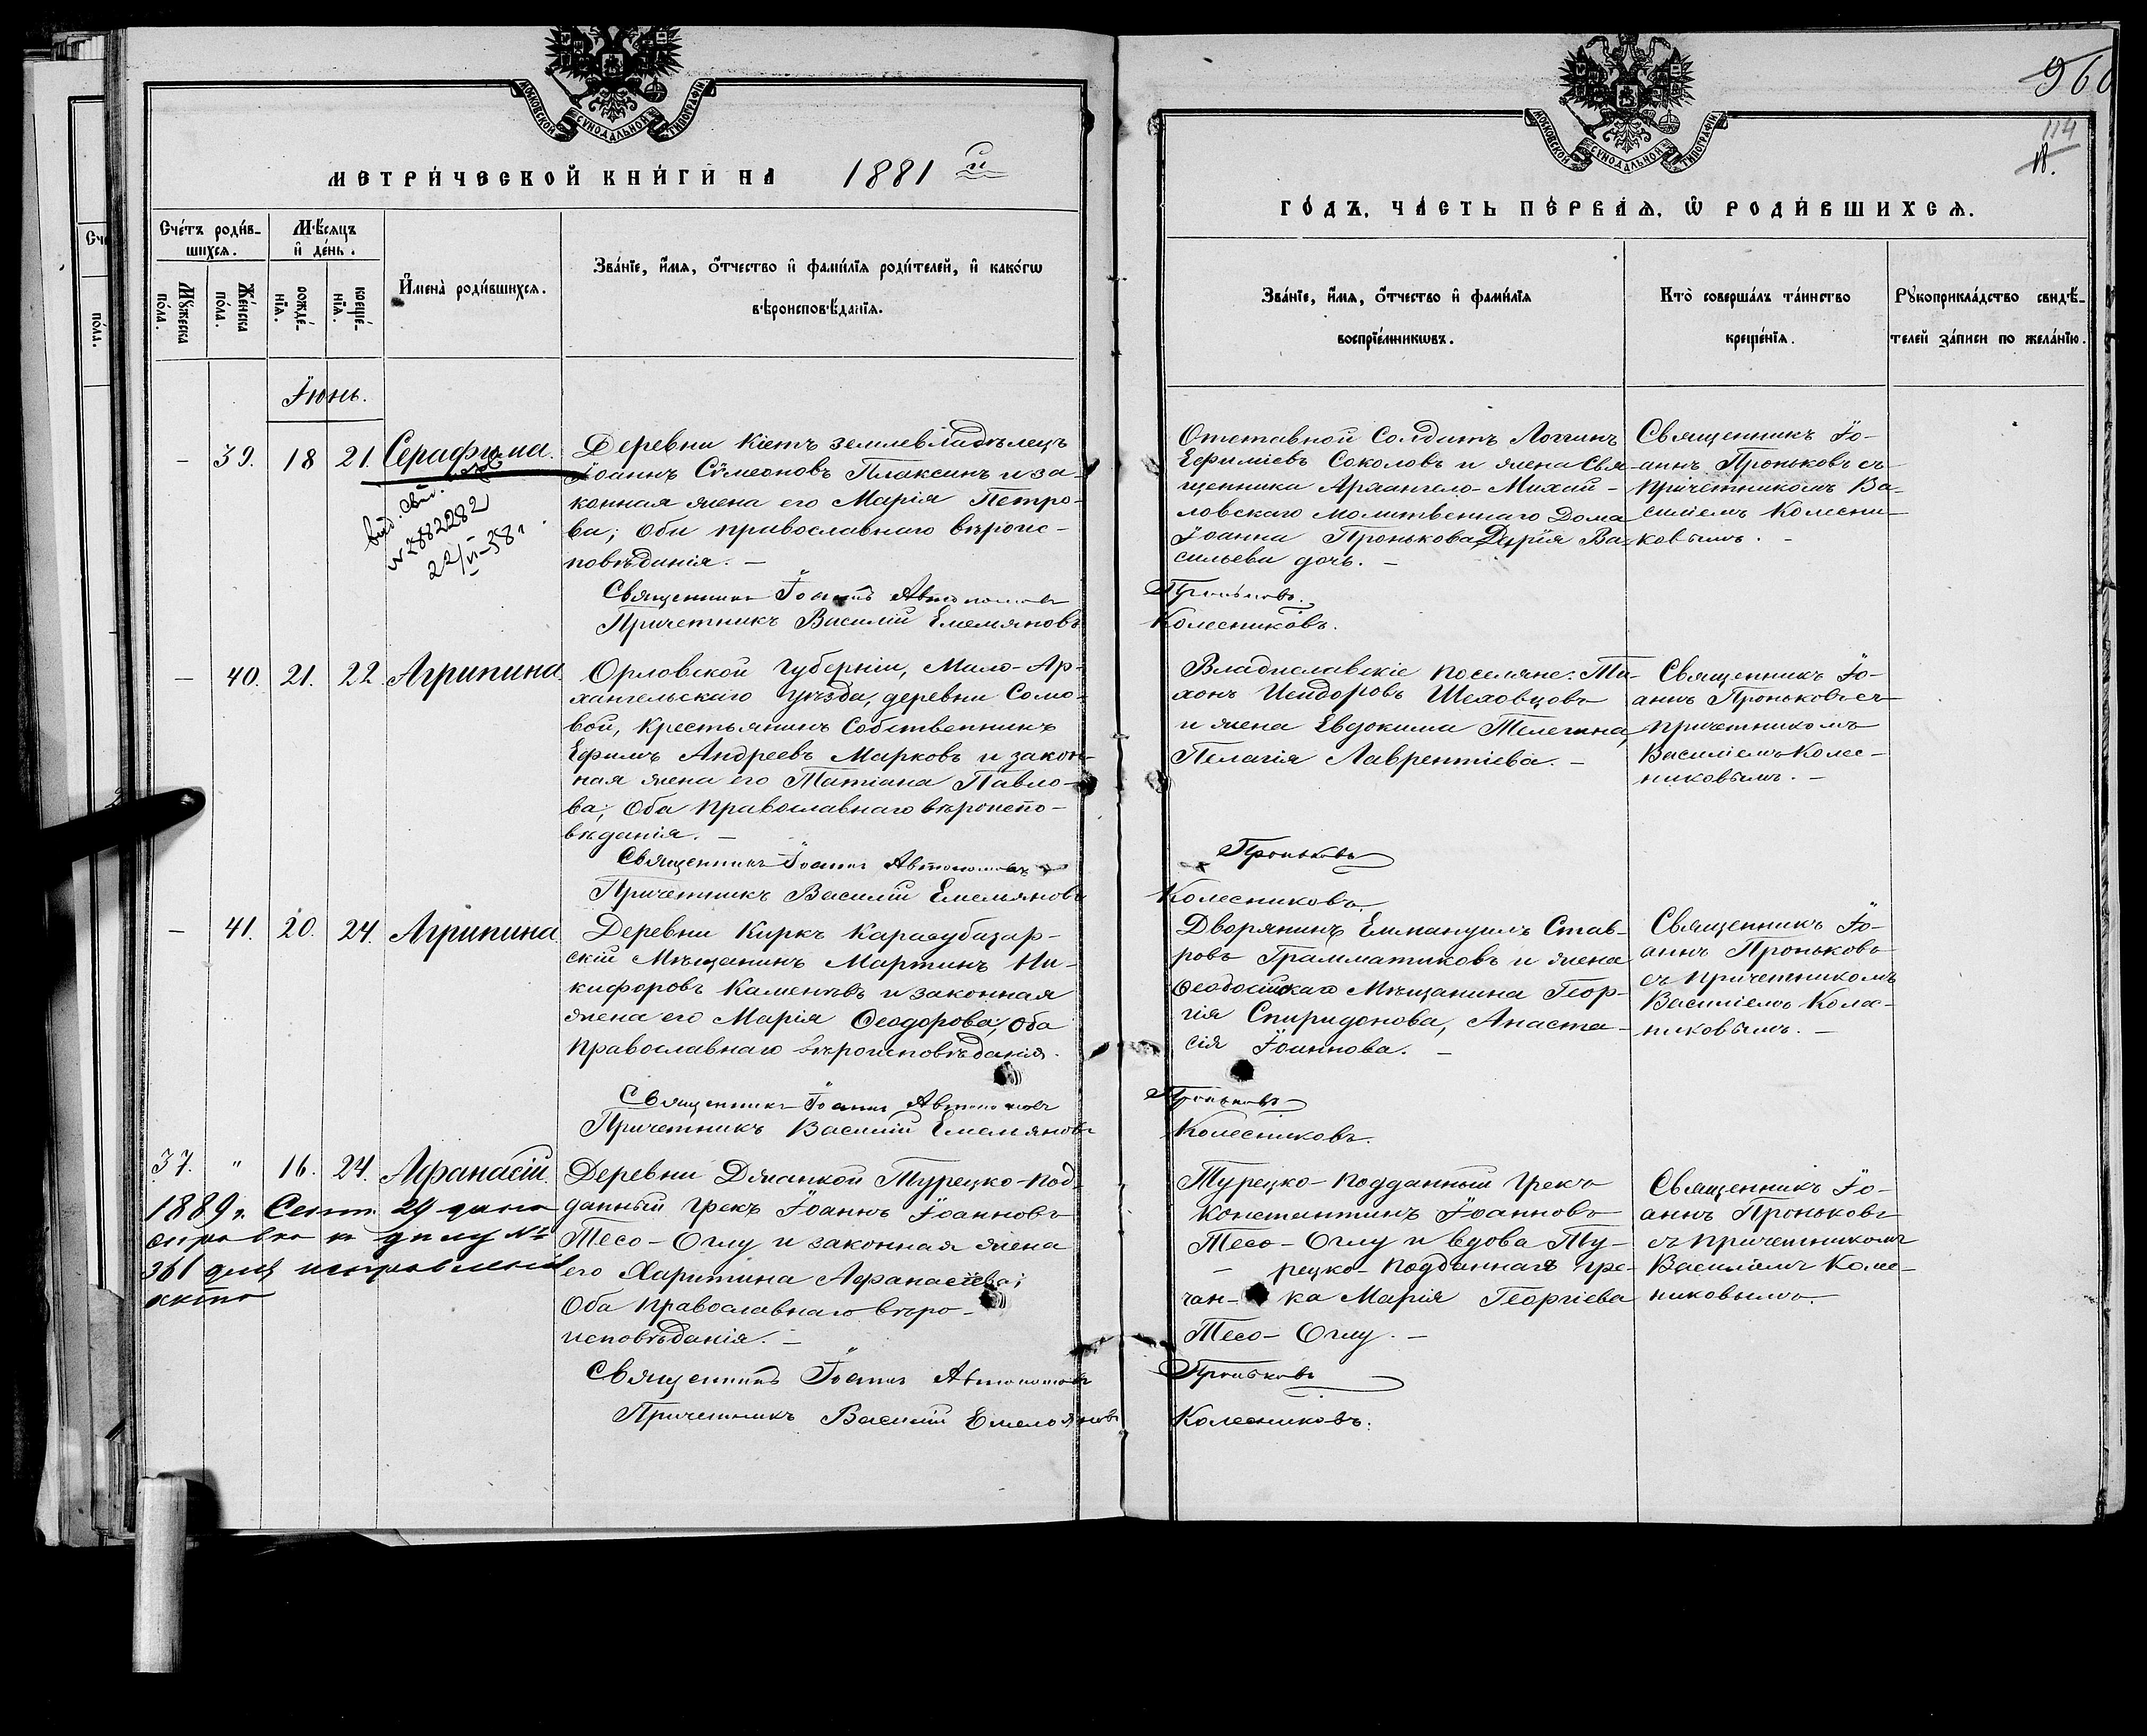 МОСКОВСКОЙ СУНОДАЛЬНОЙ ТИПОГРАФІИ
МЕТРИЧЕСКОЙ КНИГИ НА 1881 й
Счетъ родив-
шихся.
Мѣсяцъ
и день.
Мужеска
пола.
Женска
пола.
рожде-
нія.
креще-
нія.
Имена родившихся.
Званіе, имя, отчество и фамилія родителей, и какогѡ
вѣроисповѣданія.
Іюнь.
– 39. 18 21. Серафима.
Деревни Кіетъ землевладѣлецъ
Іоаннъ Сѵмеоновъ Плаксинъ и за-
конная жена его Марія Петро-
ва; оби православнаго вѣроис-
повѣданія. –
№ 2882282
22/VI-38 г.
Священникъ Іоаннъ Автономовъ
Причетникъ Василій Емельяновъ
– 40. 21. 22. Агрипина.
Орловской губерніи, Мало-Ар-
хангельскаго уѣзда, деревни Сомо-
вой, крестьянинъ собственникъ
Ефимъ Андреевъ Марковъ и закон-
ная жена его Татіана Павло-
ва; Оба православнаго вѣроиспо-
вѣданія. –
Священникъ Іоаннъ Автономовъ
Причетникъ Василій Емельяновъ
– 41. 20. 24. Агрипина
Деревни Киркъ Карасубазар-
скій Мѣщанинъ Мартинъ Ни-
кифоровъ Каменевъ и законная
жена его Марія Ѳеодорова; оба
православнаго вѣроисповѣданія.
Священникъ Іоаннъ Автономовъ
Причетникъ Василій Емельяновъ
37. " 16. 24. Афанасій.
Деревни Джанкой Турецко-под-
данный грекъ Іоаннъ Іоанновъ
Тесо-Оглу и законная жена
его Харитина Афанасіева;
Оба православнаго вѣро-
исповѣданія. –
1889 г. Сент. 29 дня
справка къ дѣлу №
361
Священникъ Іоаннъ Автономовъ
Причетникъ Василій Емельяновъ
960
114
МОСКОВСКОЙ СУНОДАЛЬНОЙ ТИПОГРАФІИ
ГОДЪ, ЧАСТЬ ПЕРВАЯ, Ѡ РОДИВШИХСЯ.
Званіе, имя, отчество и фамилія
воспріемникѡвъ.
Кто совершалъ таинство
крещенія.
Рукоприкладство свидѣ-
телей записи по желанію.
Отставной Солдатъ Логгинъ
Ефиміевъ Соколовъ и жена Свя-
щенника Архангело-Михай-
ловскаго молитвеннаго Дома
Іоанна Пронькова Дарія Ва-
сильева дочь. –
Священникъ Іо-
аннъ Проньковъ съ
причетникомъ Ва-
силіемъ Колесни-
ковымъ. –
Проньковъ.
Колесниковъ.
Владиславскіе поселяне: Ти-
хонъ Исидоровъ Шеховцовъ
и жена Евдокима Телегина,
Пелагія Лаврентіева. –
Священникъ Іо-
аннъ Проньковъ съ
причетникомъ
Василіемъ Колес-
никовымъ. –
Проньковъ
Колесниковъ.
Дворянинъ Еммануилъ Став-
ровъ Грамматиковъ и жена
Ѳеодосійскаго Мѣщанина Геор-
гія Спиридонова, Анаста-
сія Іоаннова. –
Священникъ Іо-
аннъ Проньковъ
съ причетникомъ
Василіемъ Колес-
никовымъ. –
Проньковъ
Колесниковъ.
Турецко-подданный грекъ
Константинъ Іоанновъ
Тесо-Оглу и вдова Ту-
рецко-подданная гре-
чан-ка Марія Георгіева
Тесо-Оглу. –
Священникъ Іо-
аннъ Проньковъ
съ причетникомъ
Василіемъ Колес-
никовымъ.
Проньковъ
Колесниковъ.